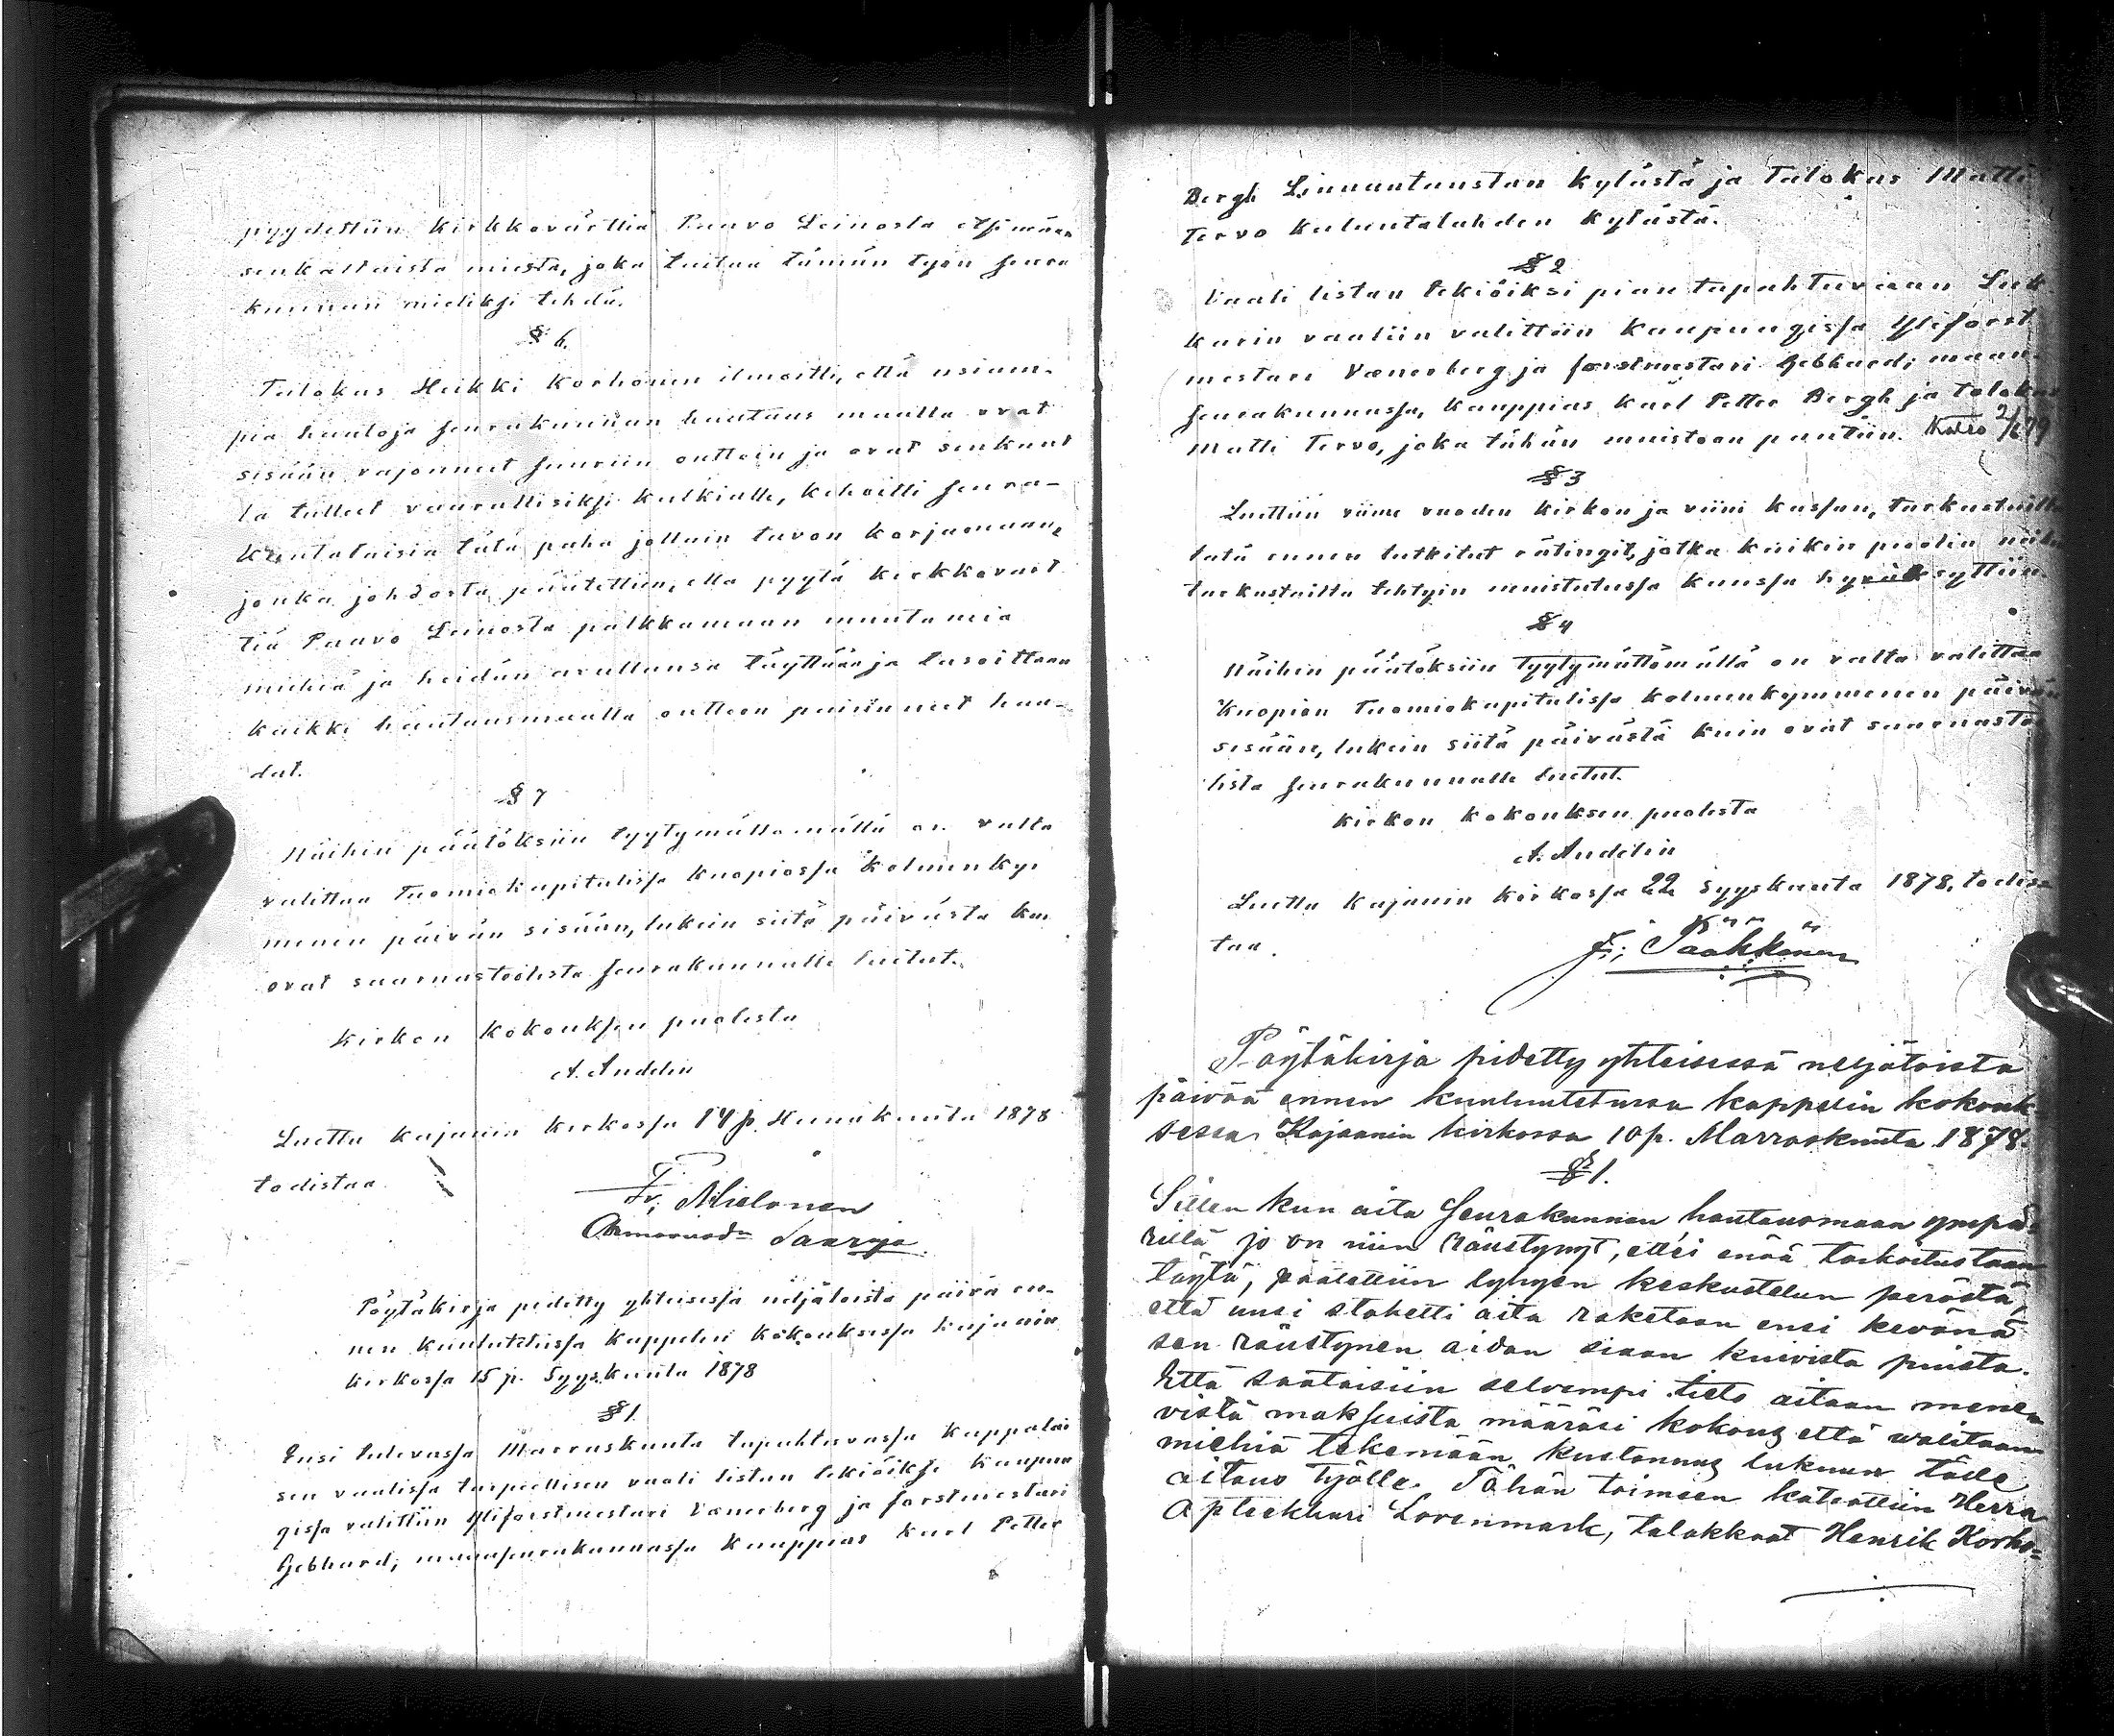 pyydettiin kirkkovärttiä Paavo Leinosta etsimään
senkaltaista miestä, joka taitaa tämän työn seura
kunnan mieliksi tehdä.
§ 6.
Talokas Heikki Korhonen ilmoitti, että usiam-
pia hautoja seurakunnan hautaus maalla ovat
sisään vajonneet suuriin onttoin ja ovat senkaut
ta tulleet vaarallisiksi kulkialle, kehoitti seura-
kuntalaisia tätä paha jollain tavon korjaamaan,
jonka johdosta päätettiin, että pyytä kirkkovärt
tiä Paavo Leinosta palkkamaan muutamia
miehiä ja heidän avullansa täyttää ja tasoittaa
kaikki hautausmaalla onttoon painuneet hau-
dat.
§ 7
Näihin päätöksiin tyytymättömällä on valta
valittaa Tuomiokapitulissa Kuopiossa kolmenky
menen päivän sisään, lukein siitä päivästä kun
ovat saarnastoolista seurakunnalle luetut.
Kirkon Kokouksen puolesta
A. Andelin
Luettu Kajanin kirkossa 14 p. Heinäkuuta 1878
todistaa
Fr. Mielonen
Saarija
Pöytäkirja pidetty yhteisessä neljätoista päivä en-
nen kuulutetussa kappelin kokouksessa Kajanin
kirkossa 15 p. Syyskuuta 1878
§ 1.
Ensi tulevassa Marraskuuta tapahtuvassa Kappalai
sen vaalissa tarpeellisen vaali listan tekiöiksi kaupun
gissa valittiin Yliforstmestari Væneberg ja forstmestari
Gebhard, maaseurakunnassa Kauppias Karl Petter
Bergh Linnantaustan kylästä ja Talokas Matti
Tervo Kuluntalahden kylästä.
§ 2
Vaali listan tekiöiksi pian tapahtuvaan Luk
karin vaaliin valittiin kaupungissa Yliforst
mestari Væneberg ja forstmestari Gebhard; maan
seurakunnassa, kauppias Karl Petter Bergh ja talokas
Matti Tervo, joka tähän muistoon pantiin. Katso 2/6 79
§ 3
Luettiin viime vuoden kirkon ja viini kassan, tarkastuilta
tätä ennen tutkitut rätingit, jotka kaikin puolin näilä
tarkastuilta tehtyin muistutussa kanssa hyväksyttiin.
§ 4
Näihin päätöksiin tyytymättömällä on valta valittaa
Kuopion Tuomiokapitulissa kolmenkymmenen päivän
sisään, lukein siitä päivästä kuin ovat saarnasto
lista seurakunnalle luetut.
Kirkon kokouksen puolesta
A. Andelin
Luettu Kajanin kirkossa 22 Syyskuuta 1878, todis
taa.
F; Pääkkönen
Pöytäkirja pidetty yhteisessä neljätoista
päivää ennen kuuluutetussa kappelin kokouk
sessa Kajaanin kirkossa 10 p. Marraskuuta 1878.
§ 1.
Sitten kun aita Seurakunnan hautausmaan ympä-
rillä jo on niin räustynyt, ettei enää tarkoitustaan
täytä, päätettiin lyhyen keskustelun perästä,
että uusi staketti aita raketaan ensi kevänä
sen räustynen aidan siaan kuivista puista.
Että saataisiin selvempi tieto aitaan mene-
vistä maksuista määräsi kokous että valitaan
miehiä tekemään kustannus lukuun tälle
aitaus työlle. Tähän toimeen katsottiin Herra
Apteekkari Lovenmark, talokkaat Henrik Korho=